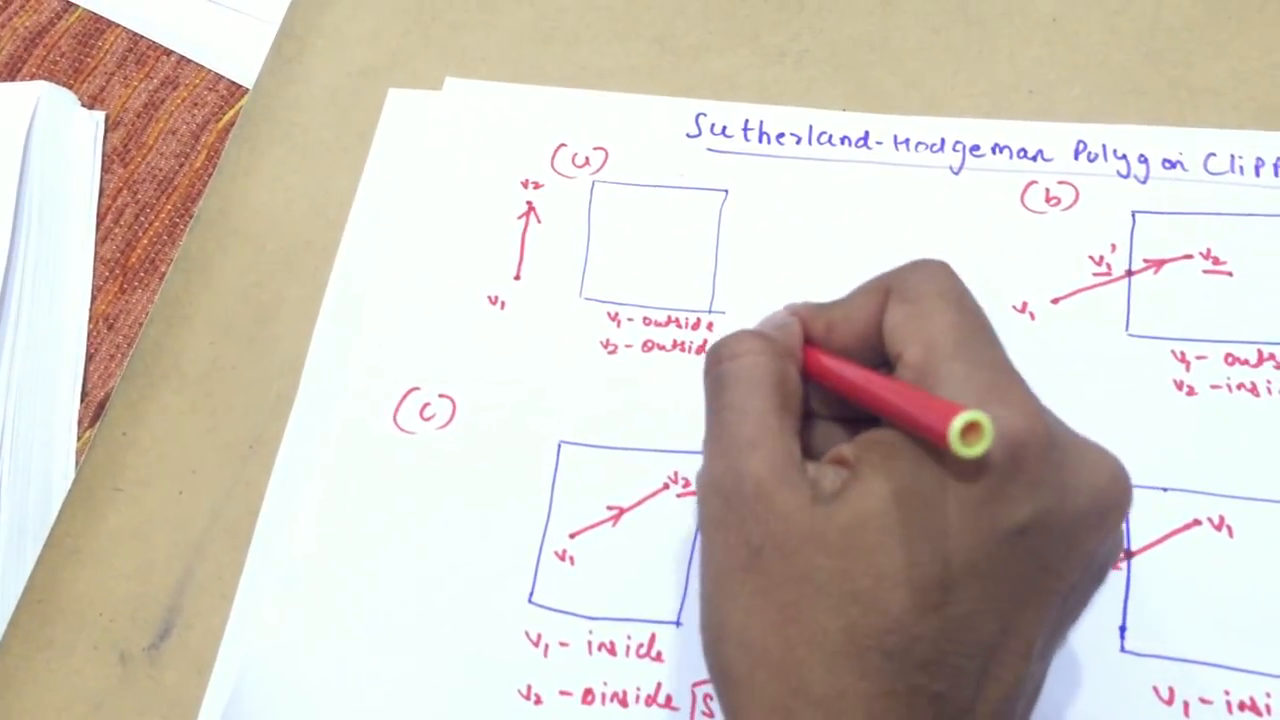 Sutherland-Hodgeman Polygon Clipp
(a)
v2
v1
v1 - outside
v2 - outsid
(b)
v1'
v2
v1
v1 - outs
v2 - insi
(c)
v2
v1
v1 - inside
v2 - Dinside S
v1
v1 - insi